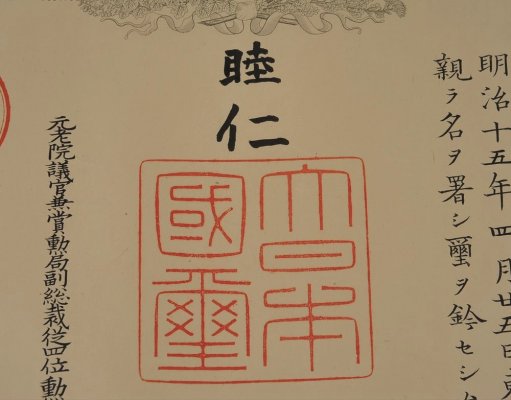 明治十五年四月廿五日東
親ラ名ヲ署シ璽ヲ鈐セシム
睦仁
大日本
國璽
元老院議官兼賞勲局副総裁従四位勲